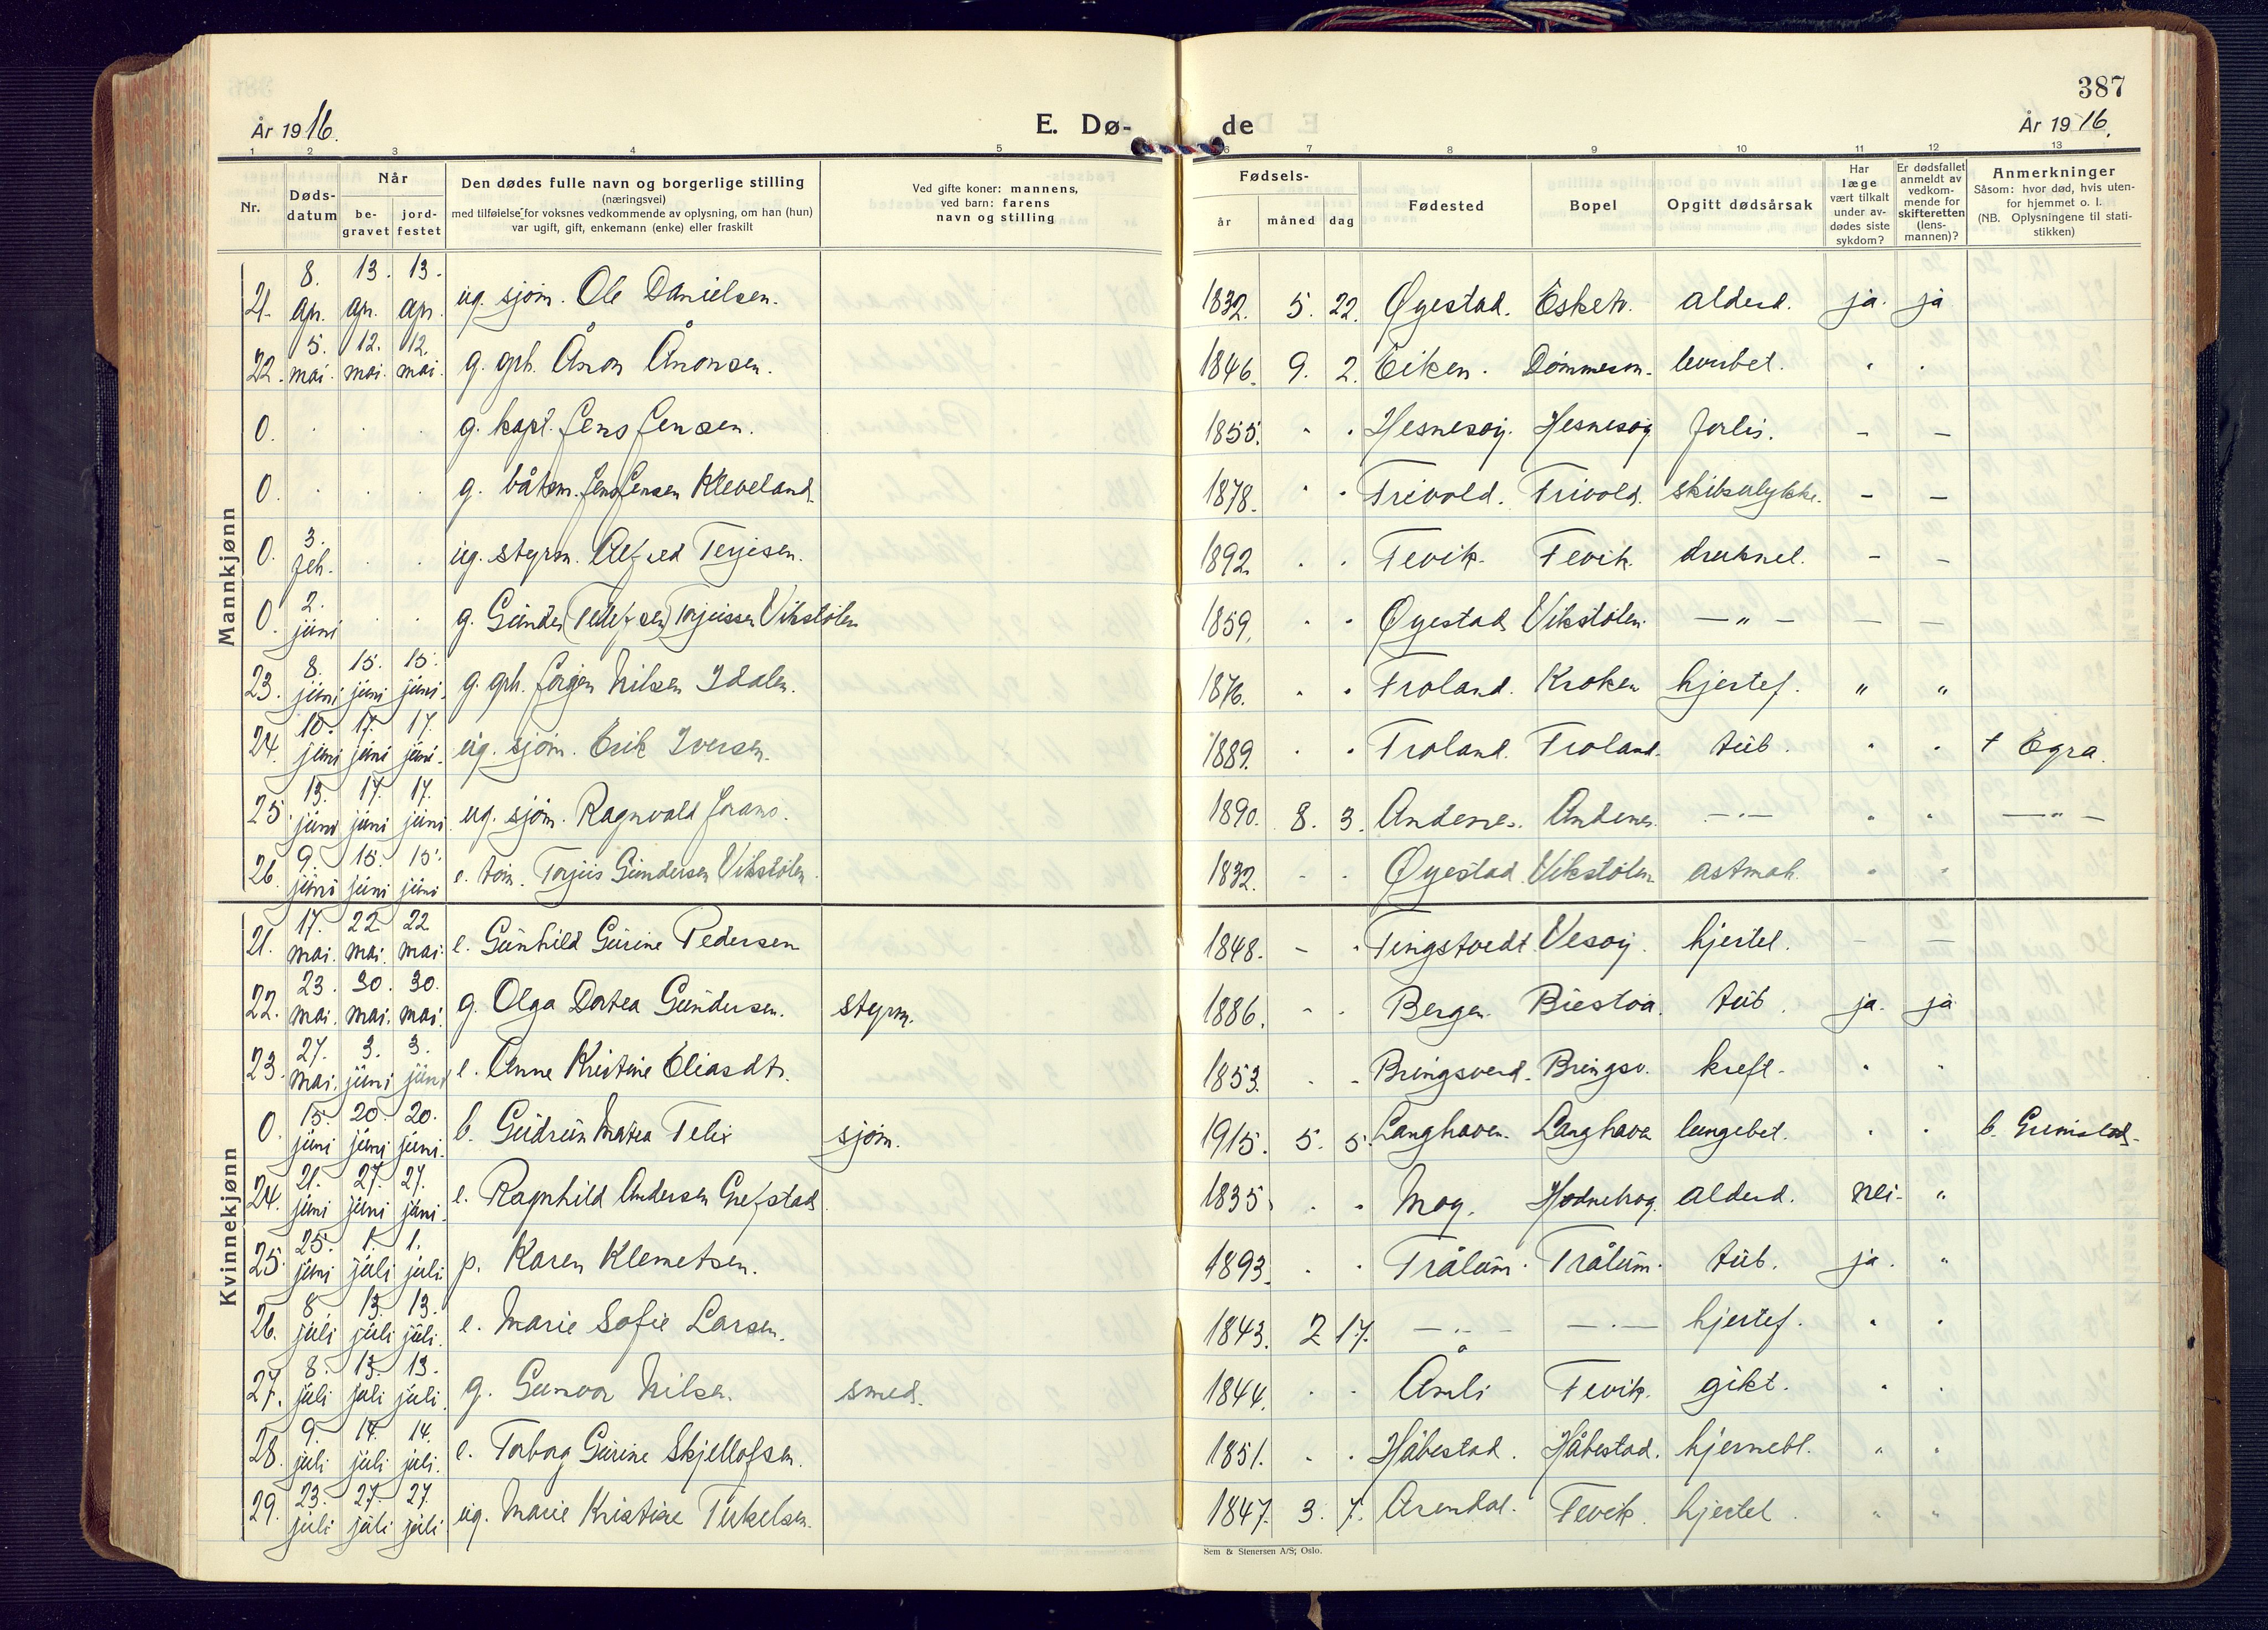 387
År 1916.
E. Dø-
de
År 1916.
1 2 3 4 5 6 7 8 9 10 11 12 13
Nr.
Døds-
datum
Når
be-
gravet
jord-
festet
Den dødes fulle navn og borgerlige stilling
(næringsvei)
med tilføielse for voksnes vedkommende av oplysning, om han (hun)
var ugift, gift, enkemann (enke) eller fraskilt
Ved gifte koner: mannens,
ved barn: farens
navn og stilling
Fødsels-
år
måned
dag
Fødested
Bopel
Opgitt dødsårsak
Har
læge
vært tilkalt
under av-
dødes siste
sykdom?
Er dødsfallet
anmeldt av
vedkom-
mende for
skifteretten
(lens-
mannen)?
Anmerkninger
Såsom: hvor død, hvis uten-
for hjemmet o. l.
(NB. Oplysningene til stati-
stikken)
Mannkjønn
21. 8. apr. 13. apr. 13. apr. ug. sjøm. Ole Danielsen. 1832. 5. 22. Øyestad. Eskeh. alderd. ja. ja
22. 5. mai. 12. mai. 12. mai. g. gph. Ånon Ånonsen. 1846. 9. 2. Eiken. Dømmesm. leverbet. " "
0. g. kapt. Jens Jensen. 1855. Hesnesøy. Hesnesøy forlis. - -
0. g. båtsm. Jens Jensen Kleveland. 1878. Trivold. Trivold. skibsulykke. - -
0. 3. feb. ug. styrm. Alfred Terjesen. 1892. Fevik. Fevik. druknet. - -
0. 2. juni g. Gunder (Pedersen) Torjussen Vikstølen 1859. Øyestad Vikstølen. — " — — —
23. 8. juni 15. juni 15. juni. g. gph. Jørgen Nilsen Idalen. 1876. Froland. Kroken hjertef. " "
24. 10. juni 17. juni 17. juni. ug. sjøm. Erik Iversen. 1889. Froland. Froland. tub. " " † Egra.
25. 13. juni 17. juni 17. juni ug. sjøm. Ragnvald Jorans. 1890. 8. 3. Andenes. Andenes. — " — " " — " —
26. 9. juni 15. juni 15. juni e. tøm. Torjus Gundersen Vikstølen. 1832. Øyestad Vikstølen astmah. " "
Kvinnekjønn
21. 17. mai. 22 mai. 22 mai. e. Gunhild Gurine Pedersen 1848. - Tingstvedt Vesøy. hjertel. - -
22. 23. mai. 30. mai. 30. mai. g. Olga Dortea Gundersen. styrm. 1886. Bergen. Biestøa. tub. ja. ja
23. 27. mai. 3. juni 3. juni e. Anne Kristine Eliasdtr. 1853. Bringsverd. Bringsv. kreft. " "
0. 15. juni 20. juni 20. juni. b. Gudrun Matea Felix sjøm. 1915. 5. 5. Langhaven. Langhave lungebet. " " b. Grimstad.
24. 21. juni 27. juni 27. juni. e. Ragnhild Andersen Grefstad. 1835. Moy. Hodnebrog. alderd. nei. "
25. 25. juni 1. juli 1. juli. p. Karen Klemetsen. 1893. Trålum. Trålum. tub. ja. "
26. 8. juli 13. juli 13. juli. e. Marie Sofie Larsen. 1843. 2 17. — " — — " — hjertef. " "
27. 8. juli 13. juli 13. juli. g. Gunvor Nilsen. smed. 1844. Åmli Fevik. gikt. " "
28. 9. juli 14. juli 14. juli. e. Torborg Gurine Skjellofsen. 1851. Håbestad. Håbestad. hjernebl. " "
29. 23. juli 27. juli 27. juli ug. Marie Kristine Terkelsen. 1847. 3. 7. Arendal. Fevik. hjertel. " "
Sem & Stenersen A/S, Oslo.